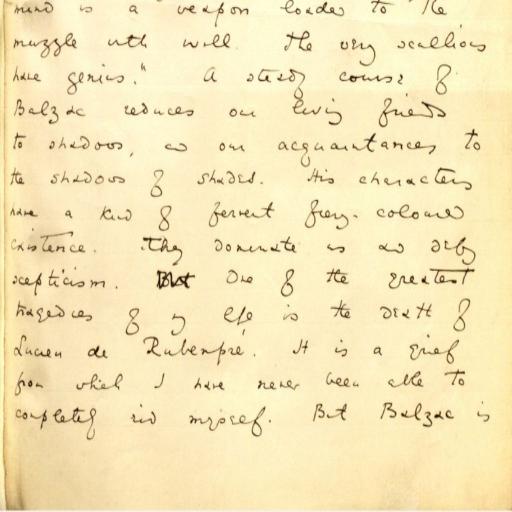 mind is a weapon loaded to the
muzzle with will. The very scullions
have genius." A steady course of
Balzac reduces our living friends
to shadows, and our acquaintances to
the shadows of shades. His characters
have a kind of fervent fiery-coloured
existence. They dominate us and defy
scepticism. One of the greatest
tragedies of my life is the death of
Lucien de Rubempré. It is a grief
from which I have never been able to
completely rid myself. But Balzac is